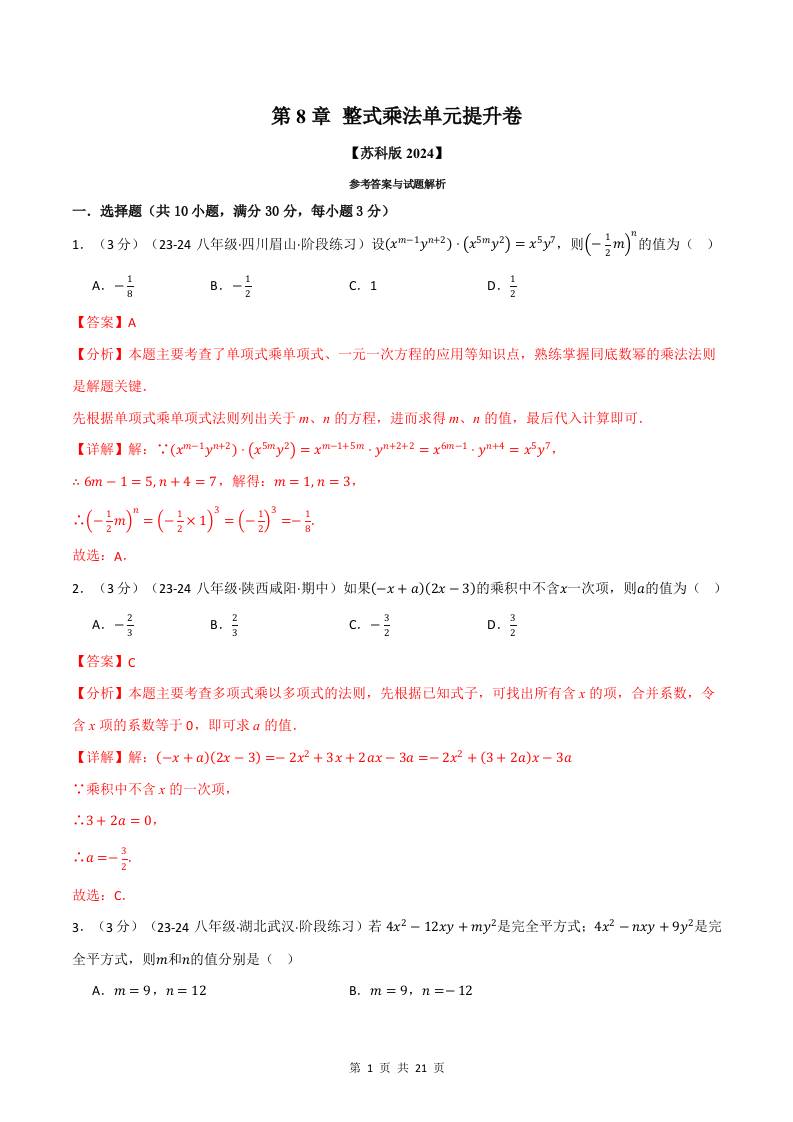 第 8 章 整式乘法单元提升卷
【苏科版 2024】
参考答案与试题解析
一．选择题（共 10 小题，满分 30 分，每小题 3 分）
1．（3 分）（23-24 八年级·四川眉山·阶段练习）设(x^{m−1}y^{n+2})·(x^{5m}y^2)=x^5y^7，则(−\frac{1}{2}m)^n的值为（ ）
A．−\frac{1}{8} B．−\frac{1}{2} C．1 D．\frac{1}{2}
【答案】A
【分析】本题主要考查了单项式乘单项式、一元一次方程的应用等知识点，熟练掌握同底数幂的乘法法则
是解题关键．
先根据单项式乘单项式法则列出关于 m、n 的方程，进而求得 m、n 的值，最后代入计算即可．
【详解】解：∵(x^{m−1}y^{n+2})·(x^{5m}y^2)=x^{m−1+5m}·y^{n+2+2}=x^{6m−1}·y^{n+4}=x^5y^7，
∴6m−1=5,n+4=7，解得：m=1,n=3，
∴(−\frac{1}{2}m)^n=(−\frac{1}{2}×1)^3=(−\frac{1}{2})^3=−\frac{1}{8}.
故选：A．
2．（3 分）（23-24 八年级·陕西咸阳·期中）如果(−x+a)(2x−3)的乘积中不含x一次项，则a的值为（ ）
A．−\frac{2}{3} B．\frac{2}{3} C．−\frac{3}{2} D．\frac{3}{2}
【答案】C
【分析】本题主要考查多项式乘以多项式的法则，先根据已知式子，可找出所有含 x 的项，合并系数，令
含 x 项的系数等于 0，即可求 a 的值．
【详解】解：(−x+a)(2x−3)=−2x^2+3x+2ax−3a=−2x^2+(3+2a)x−3a
∵乘积中不含 x 的一次项，
∴3+2a=0，
∴a=−\frac{3}{2}.
故选：C．
3．（3 分）（23-24 八年级·湖北武汉·阶段练习）若 4x^2−12xy+my^2是完全平方式；4x^2−nxy+9y^2是完
全平方式，则m和n的值分别是（ ）
A．m=9，n=12 B．m=9，n=−12
第 1 页 共 21 页